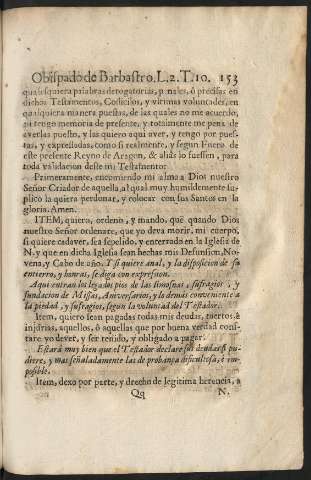 Obispado de Barbastro. L.2. T.10. 153
qualesquiera palabras derogatorias, penales, ò precisas en
dichos Testamentos, Codicilos, y vltimas voluntades, en
qualquiera manera puestas, de las quales no me acuerdo,
ni tengo memoria de presente, y totalmente me pena de
averlas puesto, y las quiero aqui aver, y tengo por pues-
tas, y expressadas, como si realmente, y segun Fuero de
este presente Reyno de Aragon, & aliàs lo fuessen, para
toda validacion deste mi Testamento.
Primeramente, encomiendo mi alma a Dios nuestro
Señor Criador de aquella, al qual muy humildemente su-
plico la quiera perdonar, y colocar con sus Santos en la
gloria. Amen.
ITEM, quiero, ordeno, y mando, que quando Dios
nuestro Señor ordenare, que yo deva morir, mi cuerpo,
si quiere cadaver, sea sepelido, y enterrado en la Iglesia de
N. y que en dicha Iglesia sean hechas mis Defunsion, No-
vena, y Cabo de año. Y si quiere anal, y la disposicion de su
entierro, y honras, se diga con expresion.
Aqui entran los legados pios de las limosnas, sufragios, y
fundacion de Missas, Aniversarios, y lo demàs conveniente a
la piedad, y sufragios, segun la voluntad del Testador.
Item, quiero sean pagadas todas mis deudas, tuertos, è
injurias, aquellos, ò aquellas que por buena verdad cons-
tare yo dever, y ser tenido, y obligado a pagar.
Estarà muy bien que el Testador declare sus deudas si pu-
diere, y mas señaladamente las de probança dificultosa, è im-
posible.
Item, dexo por parte, y drecho de legitima herencia, a
Qq N.